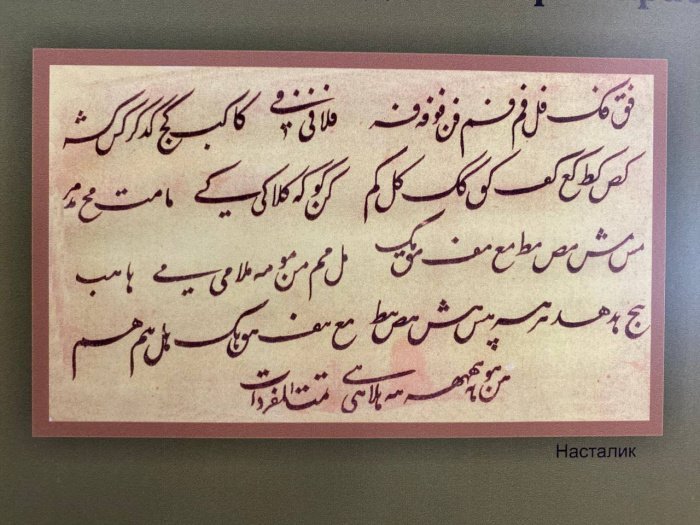 فق فک فل فم فم فن فو فه فه فلا فی فے کا کب کج کد کر کس کش
کص کط کع کف کق کک کل کم کن کو که کلا کی کے ما مت مج مد مر
مس مش مص مط مع مف مق مک مل مم من مو مه ملا می مے ها هب
هج هد هر هس هش هص هط هع هف هق هک هل هم هم
هن هو هه هه هلا هی هے تمت المفردات
Насталик